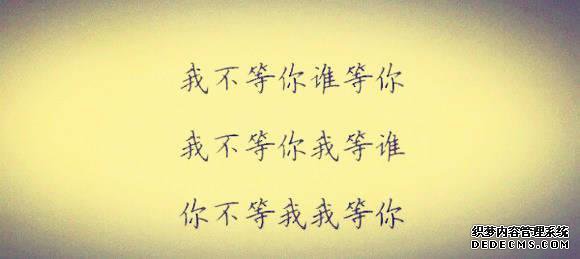 我不等你谁等你
我不等你我等谁
你不等我我等你
织梦内容管理系统
DEDECMS.COM